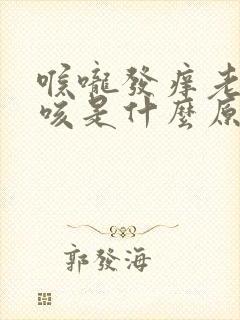 喉嚨發痒老
咳是什麼原
郭發海